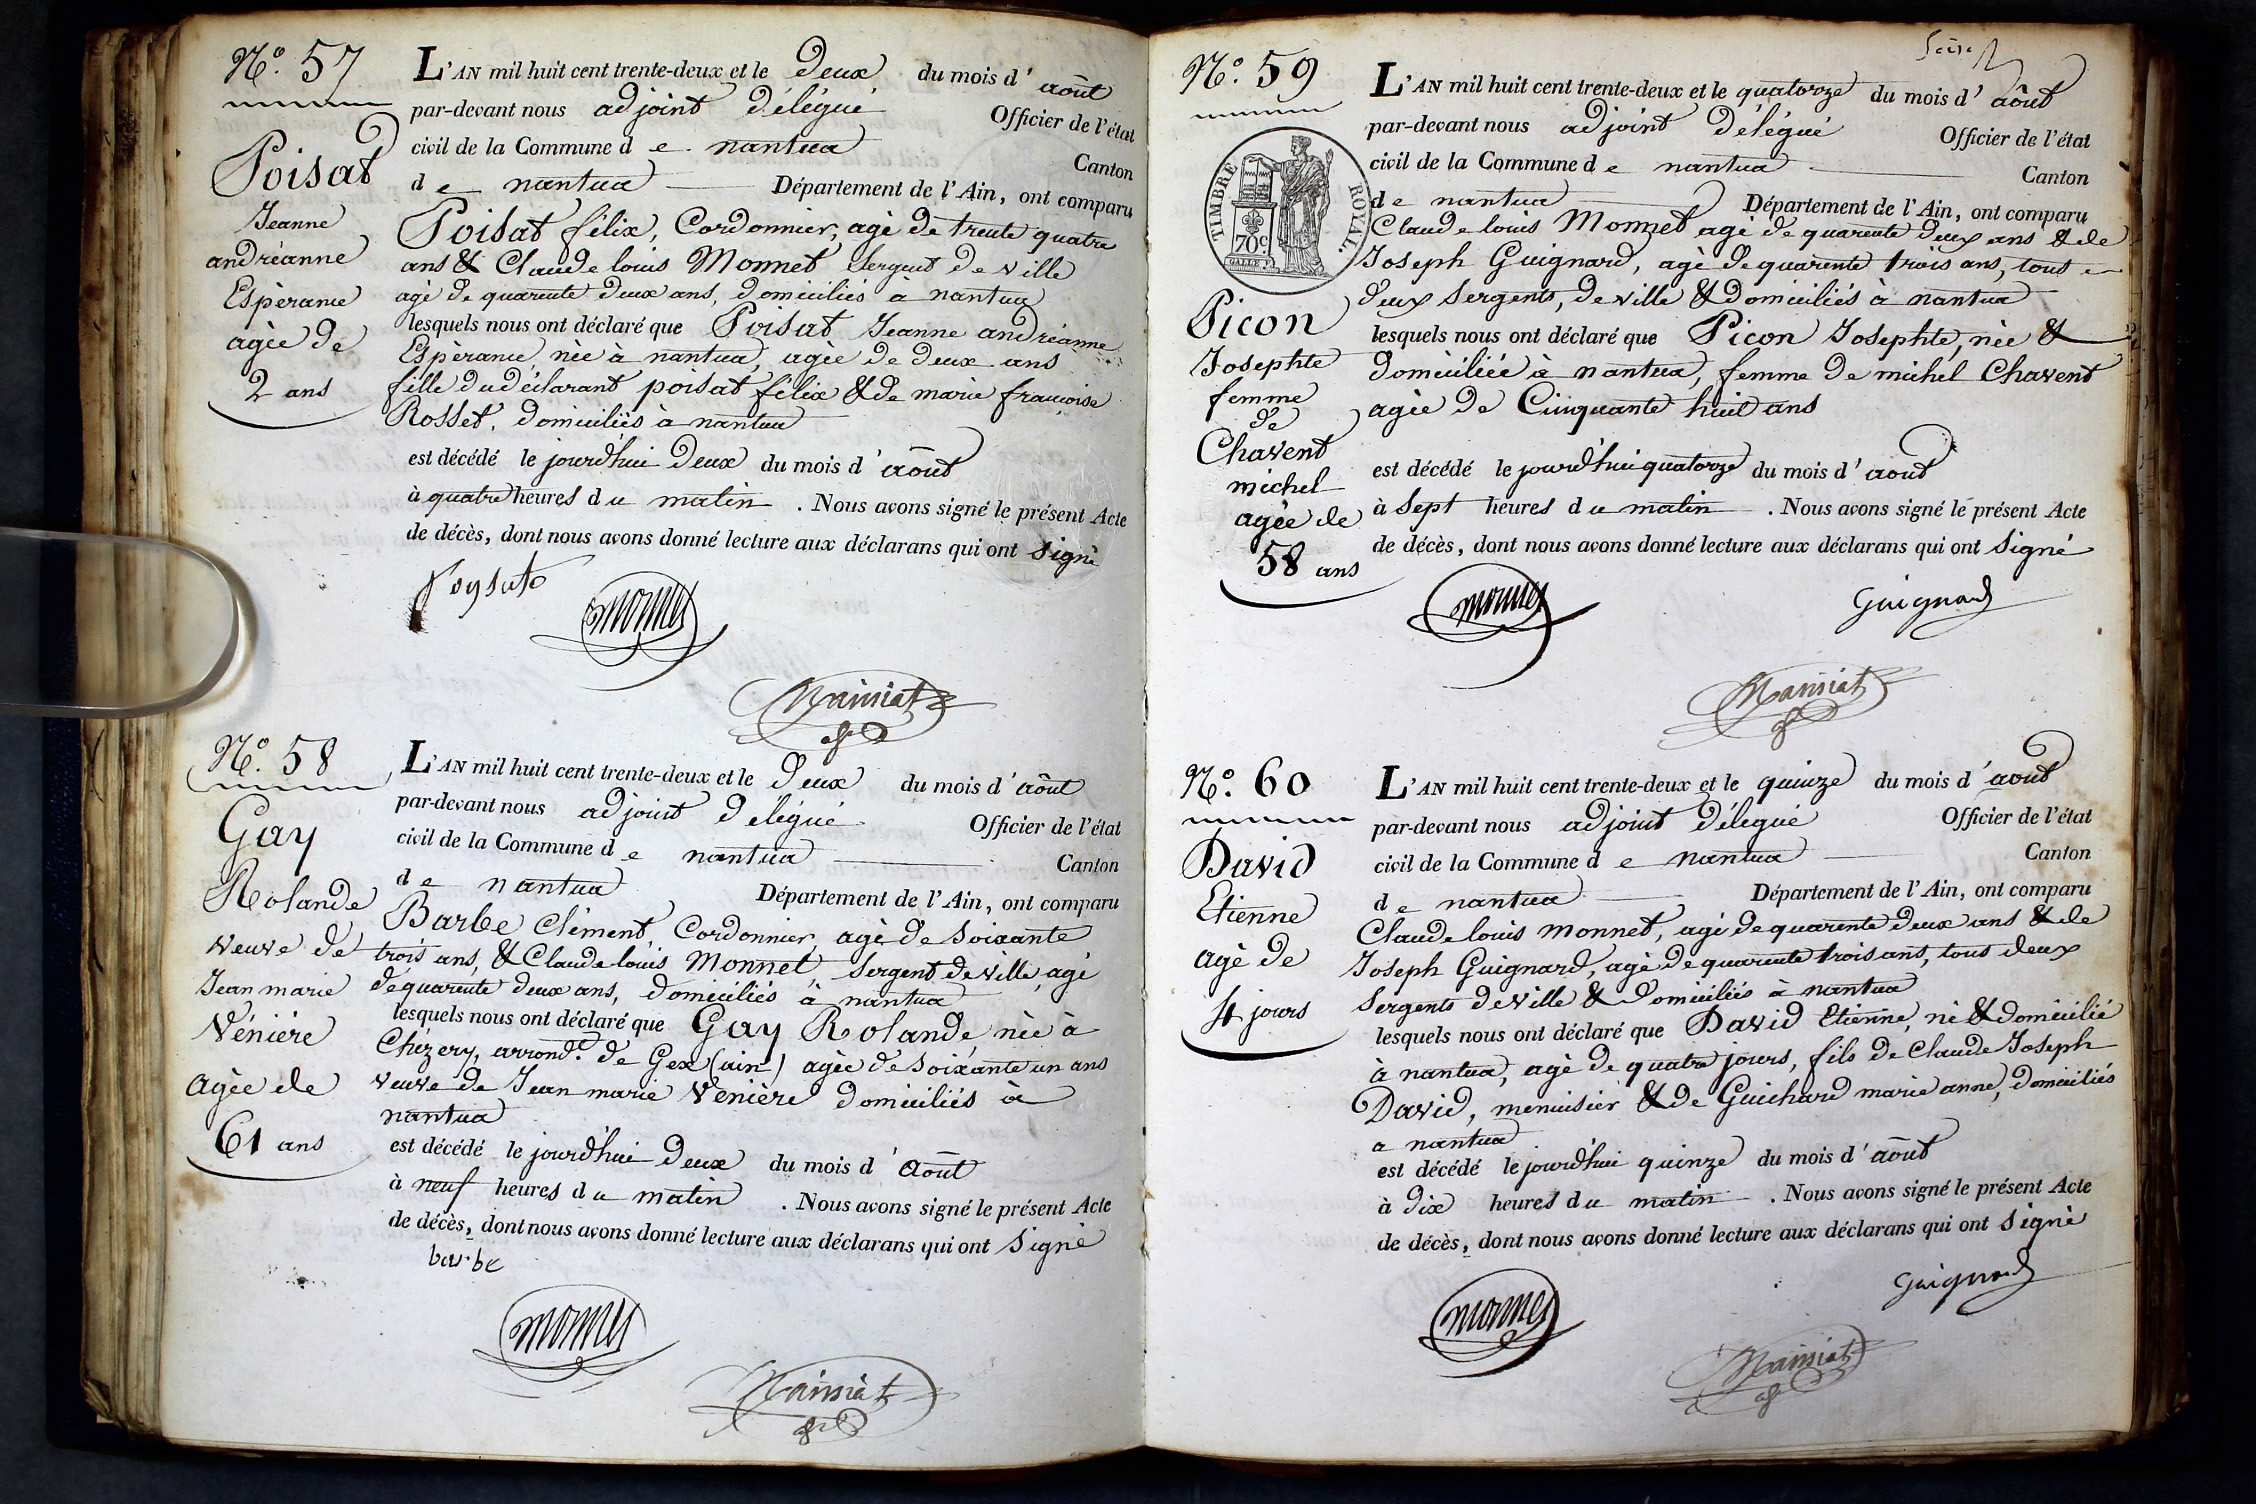 N.º 57
Poisat
Jeanne
andréanne
Espèrance
agèe de
2 ans
L'AN mil huit cent trente-deux et le deux du mois d' août
par-devant nous adjoint délégué Officier de l'état
civil de la Commune de nantua Canton
de nantua Département de l'Ain, ont comparu
Poisat félix, Cordonnier, agè de trente quatre
ans & Claude louis Monnet Sergent de ville
agè de quarente deux ans, domiciliés à nantua
lesquels nous ont déclaré que Poisat Jeanne andréanne
Espèrance nèe à nantua, agèe de deux ans
fille du déclarant poisat félix & de marie francoise
Rosset, domiciliés à nantua
est décédé le jourd'hui deux du mois d' août
à quatre heures du matin . Nous avons signé le présent Acte
de décès, dont nous avons donné lecture aux déclarans qui ont signè
monnet
N.º 58
Gay
Rolande
veuve de
Jean marie
Vénière
agèe de
61 ans
L'AN mil huit cent trente-deux et le deux du mois d' août
par-devant nous adjoint délégué Officier de l'état
civil de la Commune de nantua Canton
de nantua Département de l'Ain, ont comparu
Barbe Clément, Cordonnier, agè de Soixante
trois ans, & Claude louis Monnet Sergent de ville, agé
de quarente deux ans, domiciliés à nantua
lesquels nous ont déclaré que Gay Rolande, nèe à
Chézery, arrond.t de Gex (ain) agèe de Soixante un ans
veuve de Jean marie Venière domiciliés à
nantua
est décédé le jourd'hui deux du mois d' août
à neuf heures du matin . Nous avons signé le présent Acte
de décès, dont nous avons donné lecture aux déclarans qui ont Signè
barbe
monnet
N.º 59
TIMBRE ROYAL.
70c
Picon
Josephte
femme
de
Chavent
michel
agèe de
58 ans
L'AN mil huit cent trente-deux et le quatorze du mois d' août
par-devant nous adjoint délégué Officier de l'état
civil de la Commune de nantua Canton
de nantua Département de l'Ain, ont comparu
Claude louis Monnet agè de quarente deux ans & de
Joseph Guignard, agè de quarente trois ans, tous
deux Sergents, de ville & domiciliés à nantua
lesquels nous ont déclaré que Picon Josephte, nèe &
domiciliée à nantua, femme de michel Chavent
agèe de Cinquante huit ans
est décédé le jourd'hui quatorze du mois d' aout
à Sept heures du matin . Nous avons signé le présent Acte
de décès, dont nous avons donné lecture aux déclarans qui ont Signé
monnet Guignard
N.º 60
David
Etienne
agè de
4 jours
L'AN mil huit cent trente-deux et le quinze du mois d' aout
par-devant nous adjoint délégué Officier de l'état
civil de la Commune de nantua Canton
de nantua Département de l'Ain, ont comparu
Claude louis monnet, agé de quarente deux ans & de
Joseph Guignard, agè de quarente trois ans, tous deux
Sergents de ville & domiciliés à nantua
lesquels nous ont déclaré que David Etienne, né & domicilié
à nantua, agè de quatre jours, fils de Claude Joseph
David, menuisier & de Guichard marie anne, domiciliés
a nantua
est décédé le jourd'hui quinze du mois d' août
à dix heures du matin . Nous avons signé le présent Acte
de décès, dont nous avons donné lecture aux déclarans qui ont Signè
monnet Guignard